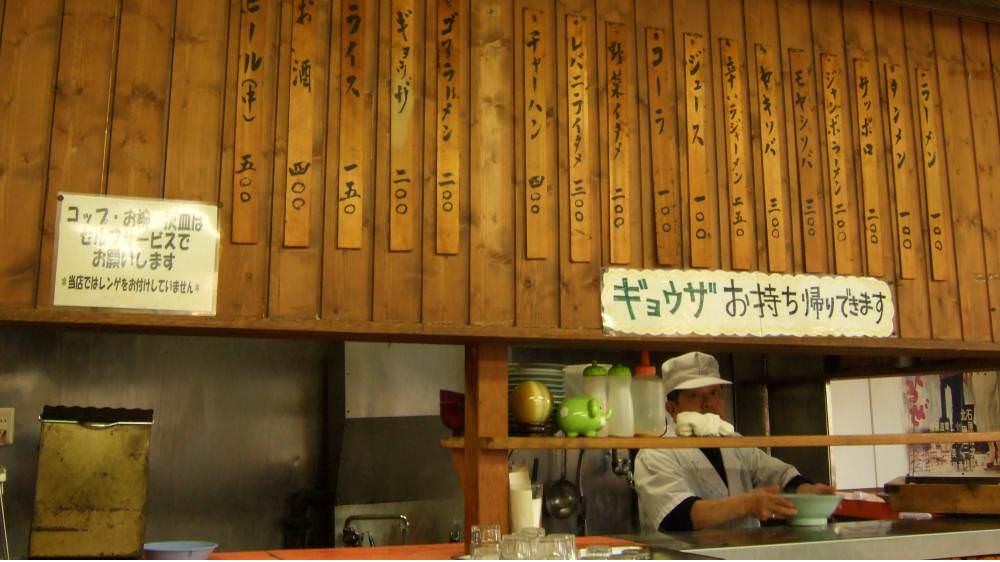 ラーメン 一〇〇
タンメン 一〇〇
サッポロ 二〇〇
ジャンボラーメン 二〇〇
モヤシソバ 三〇〇
ヤキソバ 三〇〇
ジャーメン 二五〇
ジュース 一〇〇
コーラ 一〇〇
野菜イタメ 二〇〇
レバニライタメ 三〇〇
チャーハン 四〇〇
ラーメン 二〇〇
ギョウザ 二〇〇
ライス 一五〇
お酒 四〇〇
ビール(中) 五〇〇
コップ・お
セルフサービスで
お願いします
*当店ではレンゲをお付けしていません*
ギョウザお持ち帰りできます